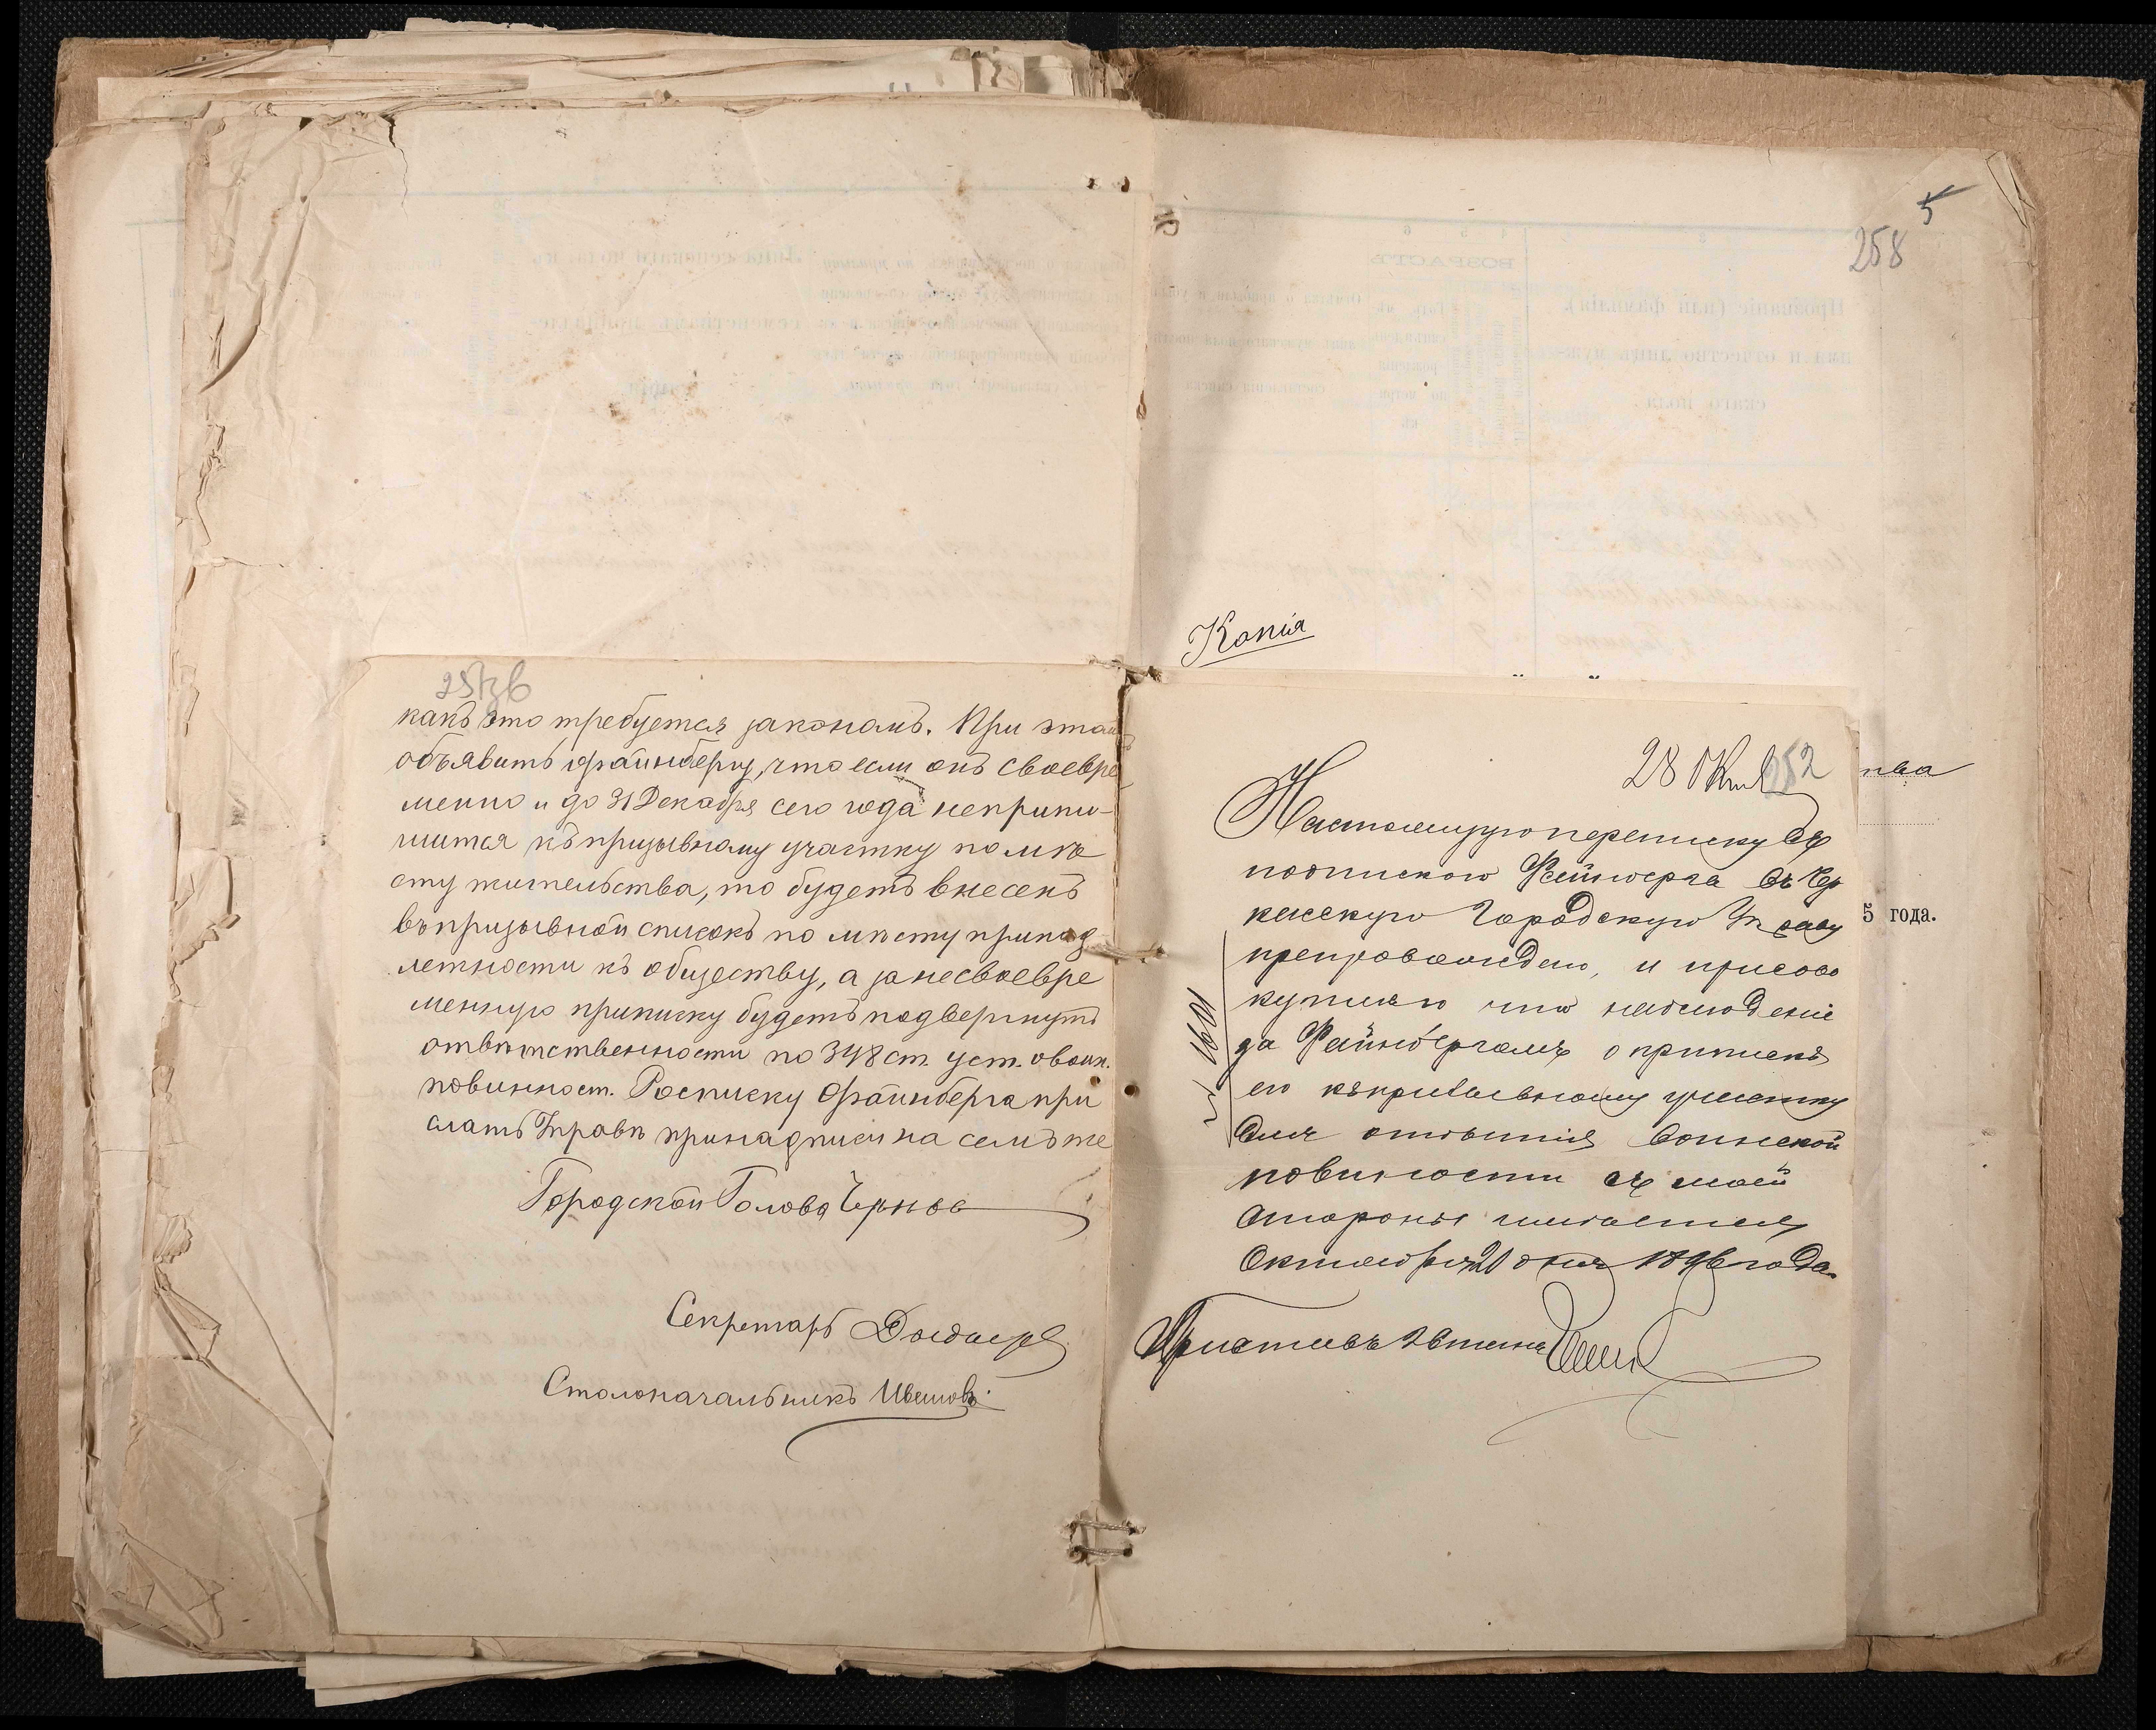 какъ это требуется закономъ. При этомъ
объявить Файнбергу, что если онъ своевре
менно и до 31 Декабря сего года неприпи-
шится къ призывному участку по мѣ
сту жительства, то будетъ внесенъ
въ призывной списокъ по мѣсту принад-
лежности къ обществу, а за несвоевре
менную приписку будетъ подвергнутъ
отвѣтственности по 348 ст. уст. о воин.
повинност. Росписку Файнберга при
слать Управѣ при надписи на семъ же
Городской Голова Чернов
Секретарь
Столоначальникъ Ивашовъ
258
5
Копія
28 Окт
52
Настоящую переписку съ
подпискою Файнберга въ Чер
касскую Городскую Управу
препровождаю, и присово
купляю что наблюденіе
за Файнбергомъ о припискѣ
его къ призывному участку
для отбытія воинской
повиности съ моей
стороны имѣется
Октября 21 дня 1896 года.
Приставъ
№ 1601
5 года.